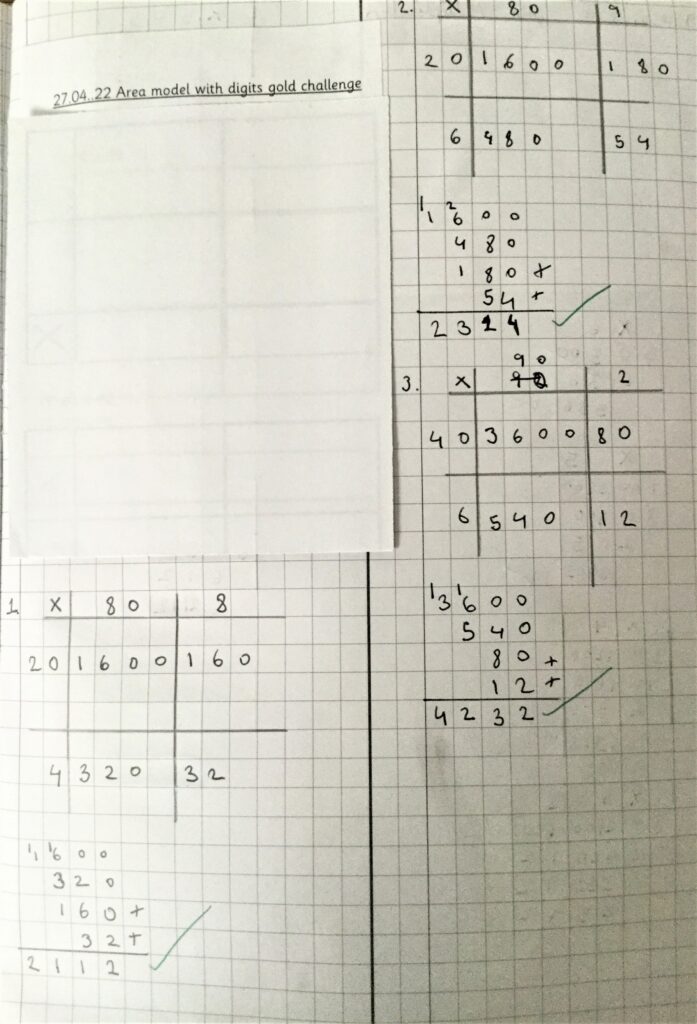 27.04..22 Area model with digits gold challenge
1. X 80 8
20 1600 160
4 320 32
1 1 1600
320
160 +
32 +
2112
2. X 80 9
20 1600 180
6 480 54
1 2 1600
480
180 +
54 +
2314
90
3. X 2
40 3600 80
6 540 12
1 1 3600
540
80 +
12 +
4232